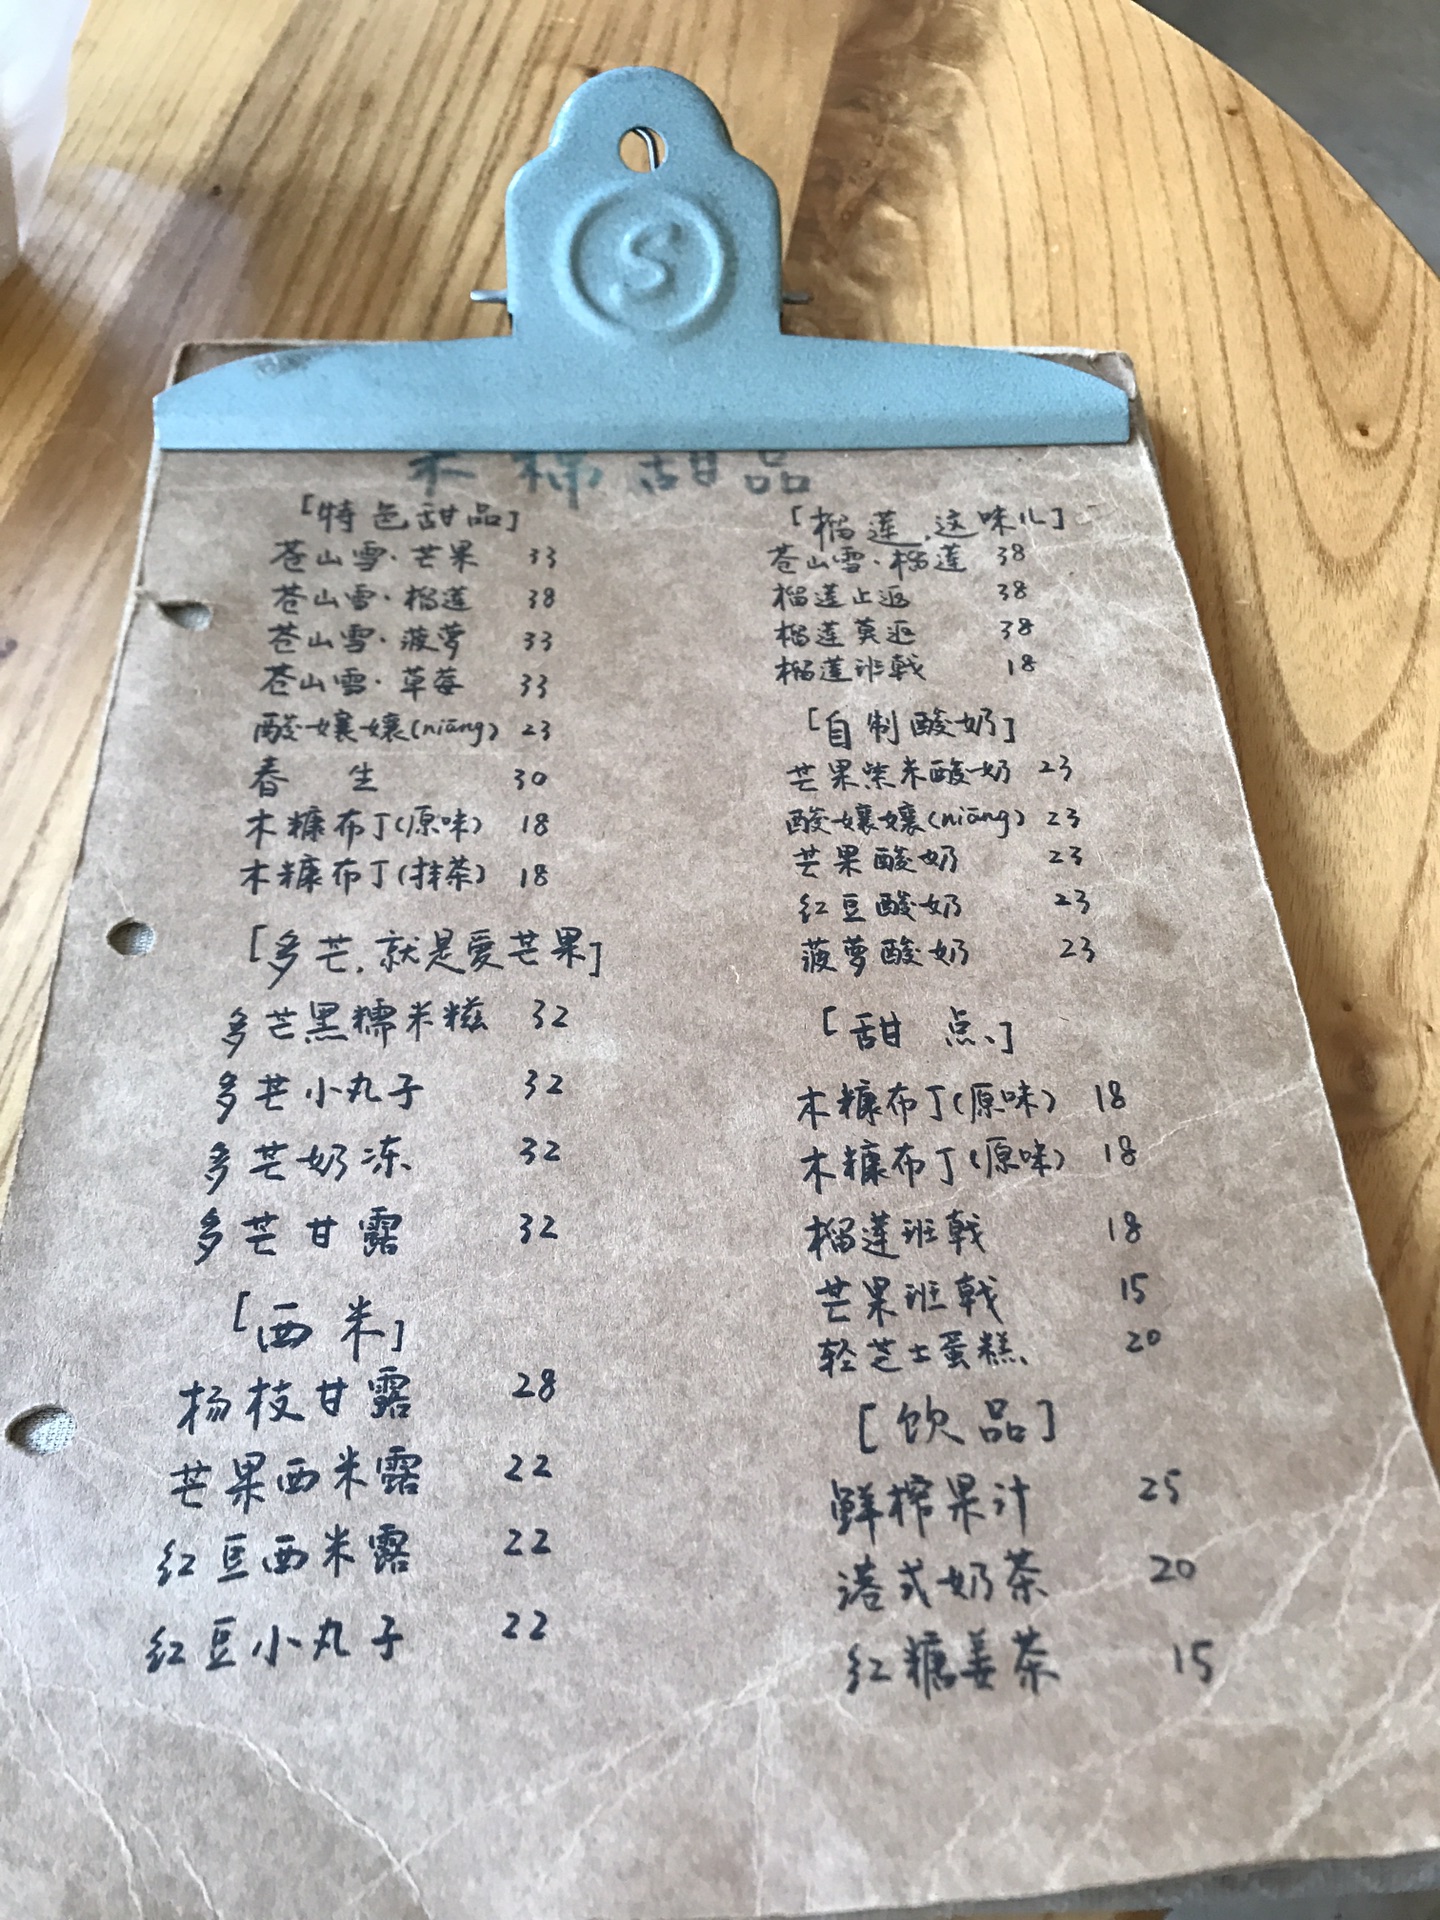 S
木棉甜品
「特色甜品」
苍山雪·芒果 33
苍山雪·榴莲 38
苍山雪·菠萝 33
苍山雪·草莓 33
酸孃孃(niāng) 23
春生 30
木糠布丁(原味) 18
木糠布丁(抹茶) 18
「多芒,就是爱芒果」
多芒黑糯米糍 32
多芒小丸子 32
多芒奶冻 32
多芒甘露 32
「西米」
杨枝甘露 28
芒果西米露 22
红豆西米露 22
红豆小丸子 22
「榴莲,这味儿」
苍山雪·榴莲 38
榴莲止返 38
榴莲莫返 38
榴莲班戟 18
「自制酸奶」
芒果紫米酸奶 23
酸孃孃(niāng) 23
芒果酸奶 23
红豆酸奶 23
菠萝酸奶 23
「甜点」
木糠布丁(原味) 18
木糠布丁(原味) 18
榴莲班戟 18
芒果班戟 15
轻芝士蛋糕 20
[饮品]
鲜榨果汁 25
港式奶茶 20
红糖姜茶 15